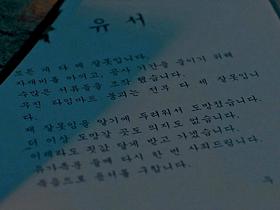 유 서
모든 게 다 제 잘못입니다.
자재비를 아끼고, 공사 기간을 줄이기 위해
수많은 서류들을 조작 했습니다.
무진 타임마트 붕괴는 전부 다 제 잘못입니
다.
제 잘못임을 알기에 두려워서 도망쳤습니다.
더 이상 도망갈 곳도 의지도 없습니다.
이제라도 죗값 달게 받고 가겠습니다.
유가족분들께 다시 한 번 사죄드립니다.
죽음으로 용서를 구합니다.